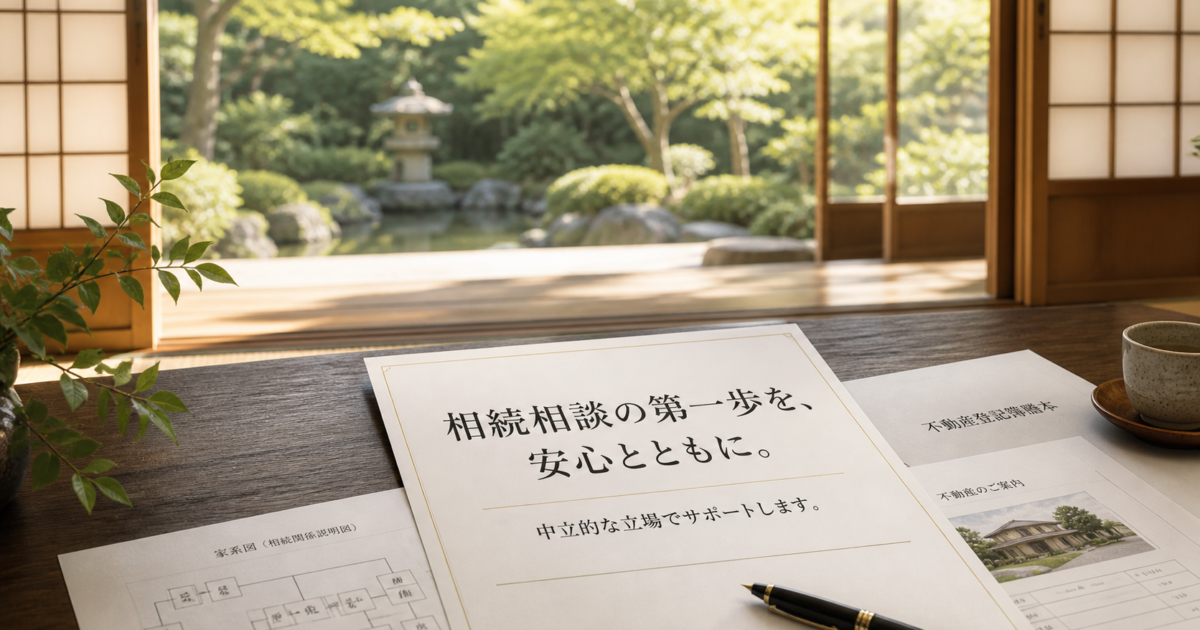 相続相談の第一歩を、
安心とともに。
中立的な立場でサポートします。
家系図(相続関係説明図)
不動産登記簿謄本
不動産のご案内